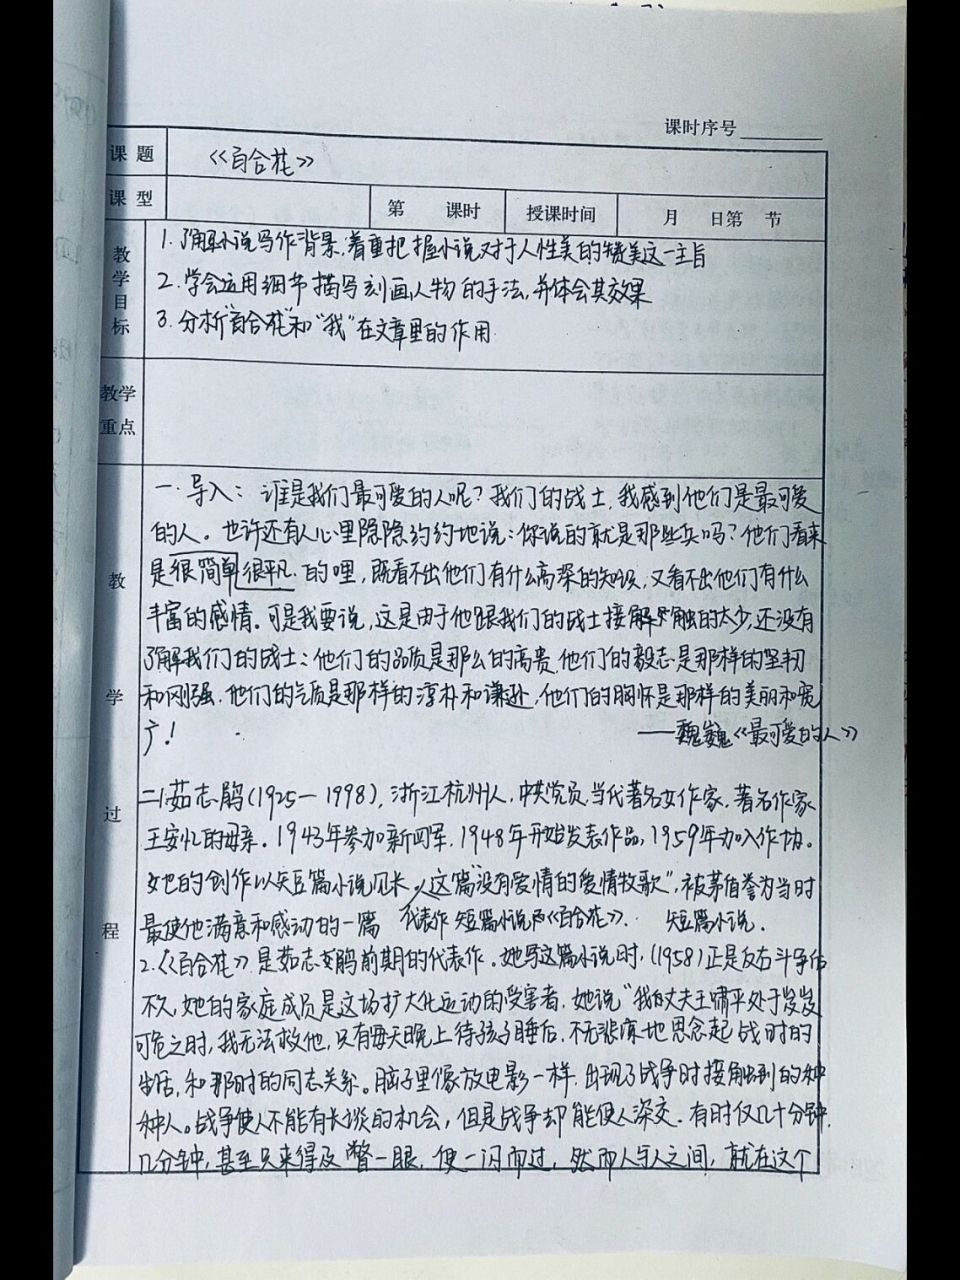 课时序号
课题 《百合花》
课型 第 课时 授课时间 月 日第 节
教学目标
1. 了解小说写作背景,着重把握小说对于人性美的赞美这一主旨
2. 学会运用细节描写刻画人物的手法,并体会其效果
3. 分析“百合花”和“我”在文章里的作用
教学重点
教学过程
一. 导入: 谁是我们最可爱的人呢?我们的战士,我感到他们是最可爱
的人。也许还有人心里隐隐约约地说:你说的就是那些兵吗?他们看来
是很简单很平凡的哩,既看不出他们有什么高深的知识,又看不出他们有什么
丰富的感情。可是我要说,这是由于他跟我们的战士接触的太少,还没有
了解我们的战士:他们的品质是那么的高贵,他们的毅志是那样的坚韧
和刚强,他们的气质是那样的淳朴和谦逊,他们的胸怀是那样的美丽和宽
广!
——魏巍《最可爱的人》
二1.茹志鹃(1925—1998),浙江杭州人,中共党员,当代著名女作家,著名作家
王安忆的母亲。1943年参加新四军,1948年开始发表作品,1959年加入作协。
她的创作以短篇小说见长,这篇“没有爱情的爱情牧歌”,被茅盾誉为当时
最使他满意和感动的一篇 代表作 短篇小说《百合花》. 短篇小说.
2.《百合花》是茹志鹃前期的代表作。她写这篇小说时,(1958)正是反右斗争后
不久,她的家庭成员是这场扩大化运动的受害者,她说“我的丈夫王啸平处于岌岌
可危之时,我无法救他,只有每天晚上待孩子睡后,不无悲凄地思念起战时的
生活,和那时的同志关系。脑子里像放电影一样,出现了战争时接触到的种
种人。战争使人不能有长谈的机会,但是战争却能使人深交。有时仅几十分钟,
几分钟,甚至只来得及瞥一眼,便一闪而过,然而人与人之间,就在这个